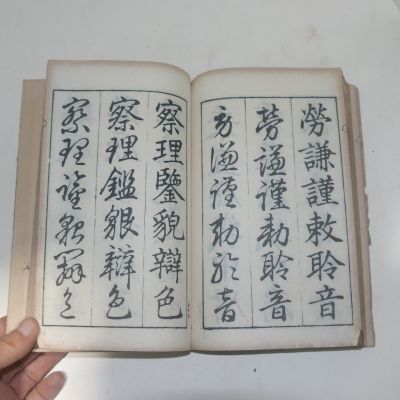 勞謙謹敕聆音
勞謙謹勅聆音
勞謙謹勅聆音
察理鑒貌辯色
察理鑑貌辯色
察理鑑貌辨色